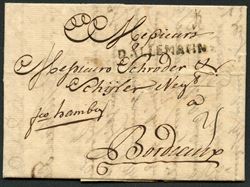 Messieurs
D'ALLEMAGN
Messieurs Schröder &
Schÿler Neg.ts
fco hambg
à
Bordeaux